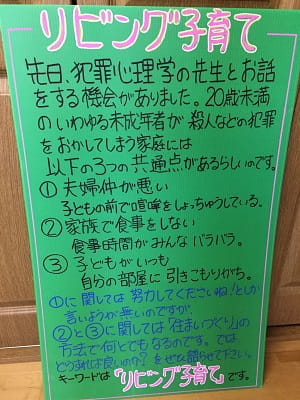 リビング子育て
先日、犯罪心理学の先生とお話
をする機会がありました。20歳未満
のいわゆる未成年者が殺人などの犯罪
をおかしてしまう家庭には
以下の3つの共通点があるらしいのです。
① 夫婦仲が悪い
子どもの前で喧嘩をしょっちゅうしている。
② 家族で食事をしない
食事時間がみんなバラバラ。
③ 子どもがいつも
自分の部屋に引きこもりがち。
①に関しては努力してくださいね!としか
言いようが無いのですが、
②と③に関しては「住まいづくり」の
方法で何とでもなるのです。では
どうすれば良いのか?をぜひ語らせて下さい。
キーワードは「リビング子育て」です。